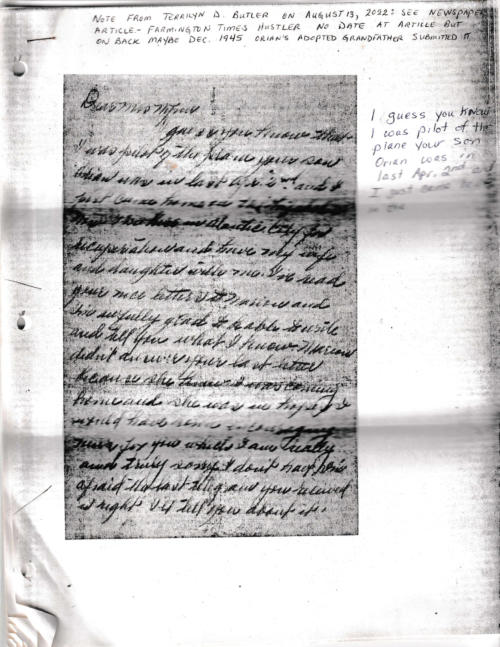 NOTE FROM TERRILYN D. BUTLER ON AUGUST 13, 2022: SEE NEWSPAPER
ARTICLE - FARMINGTON TIMES HUSTLER NO DATE AT ARTICLE BUT
ON BACK MAYBE DEC. 1945 ORIAN'S ADOPTED GRANDFATHER SUBMITTED IT
Dear Mrs
guess you know that
I was pilot of the plane your son
Orian was in last Apr. 2nd and I
just came home on the
in Atlantic City for
recuperation and have my wife
and daughter with me. I've read
your nice letters to Marion and
I'm awfully glad to be able to write
and tell you what I know. Marion
didn't answer your last letter
because she knew I was coming
home and she was in hopes I
would have some encouraging
news for you which I am really
and truly sorry I don't have. I'm
afraid the last teleg. you received
is right. I'll tell you about it.
I guess you know
I was pilot of the
plane your son
Orian was in
last Apr. 2nd and
I just came
on the